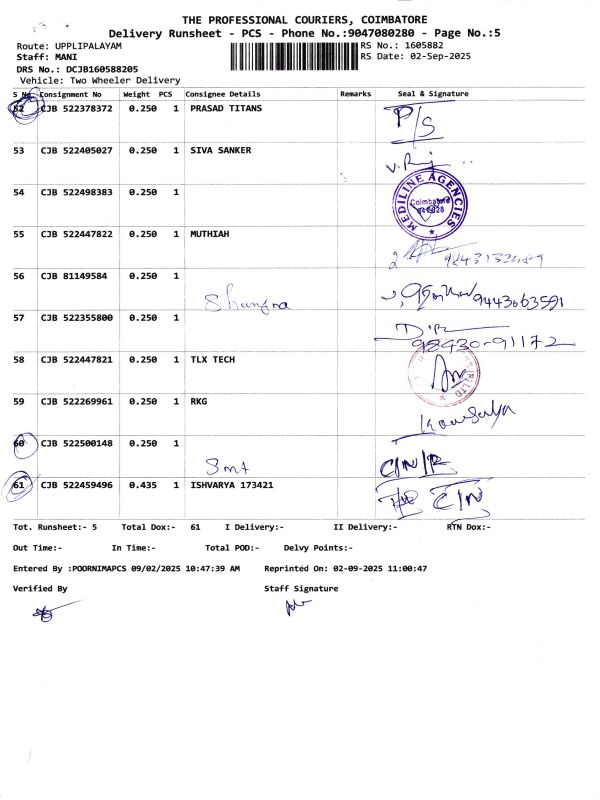 THE PROFESSIONAL COURIERS, COIMBATORE
Delivery Runsheet - PCS - Phone No.:9047080280 - Page No.:5
Route: UPPLIPALAYAM RS No.: 1605882
Staff: MANI RS Date: 02-Sep-2025
DRS No.: DCJB160588205
Vehicle: Two Wheeler Delivery
S No Consignment No Weight PCS Consignee Details Remarks Seal & Signature
52 CJB 522378372 0.250 1 PRASAD TITANS P/S
53 CJB 522405027 0.250 1 SIVA SANKER
54 CJB 522498383 0.250 1 MEDILINE AGENCIES Coimbatore
55 CJB 522447822 0.250 1 MUTHIAH
56 CJB 81149584 0.250 1 9443063591
57 CJB 522355800 0.250 1 98430-91172
58 CJB 522447821 0.250 1 TLX TECH
59 CJB 522269961 0.250 1 RKG Kowsalya
60 CJB 522500148 0.250 1 Smt C/N/R
61 CJB 522459496 0.435 1 ISHVARYA 173421 C/N
Tot. Runsheet:- 5 Total Dox:- 61 I Delivery:- II Delivery:- RTN Dox:-
Out Time:- In Time:- Total POD:- Delvy Points:-
Entered By :POORNIMAPCS 09/02/2025 10:47:39 AM Reprinted On: 02-09-2025 11:00:47
Verified By Staff Signature